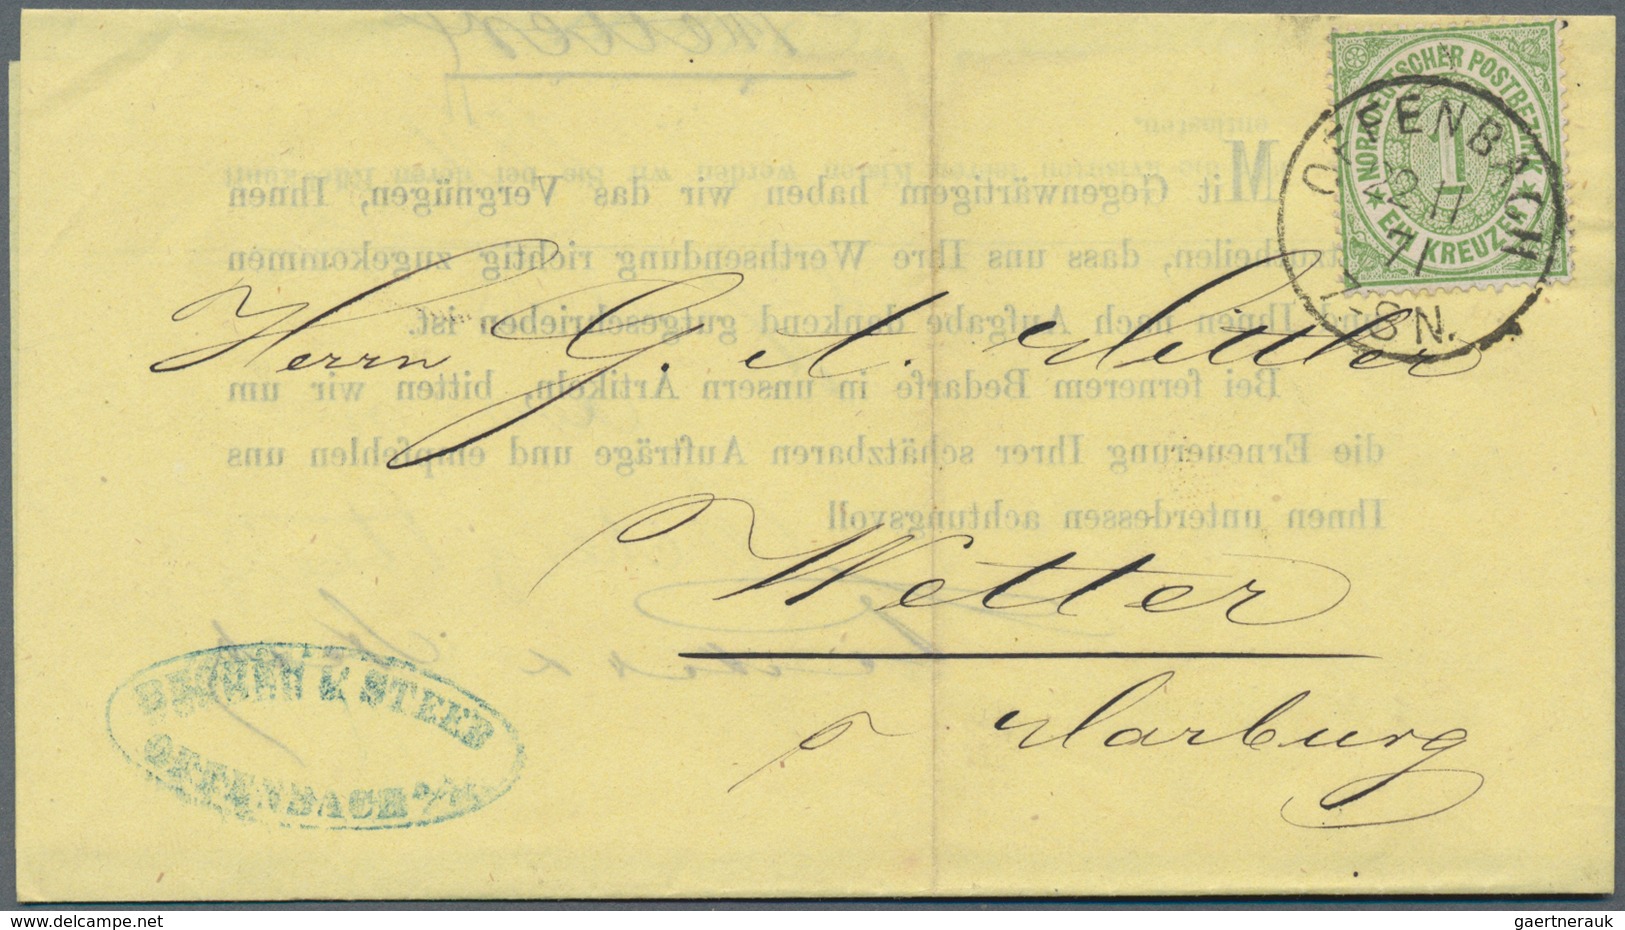 NORDDEUTSCHER POSTBEZIRK
1
EIN KREUZER
OFFENBACH
22 11
71
8 N.
Mit Gegenwärtigem haben wir das Vergnügen, Ihnen
mitzutheilen, dass uns Ihre Werthsendung richtig zugekommen
und Ihnen nach Aufgabe dankend gutgeschrieben ist.
Bei fernerem Bedarfe in unsern Artikeln, bitten wir um
die Erneuerung Ihrer schätzbaren Aufträge und empfehlen uns
Ihnen unterdessen achtungsvoll
Herrn G. A.
Wetter
Marburg
& STEEB
OFFENBACH a/M
www.delcampe.net
gaertnerauk